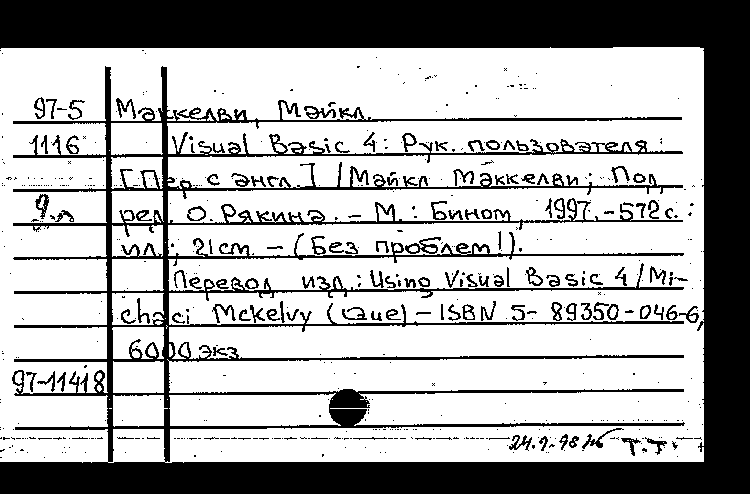 97-5 Мэккелви, Майкл.
1116 Visual Basic 4: Рук. пользователя :
[Пер с англ.] / Майкл Мэккелви; Под
ред. О. Рякина. – М. : Бином, 1997. – 572 с. :
ил.; 21 cm – (Без проблем!).
Перевод изд.: Using Visual Basic 4 / Mi-
chaci Mckelvy (Que) – ISBN 5-89350-046-6;
6000 экз
97-11418
24.9.98 Т.Т.